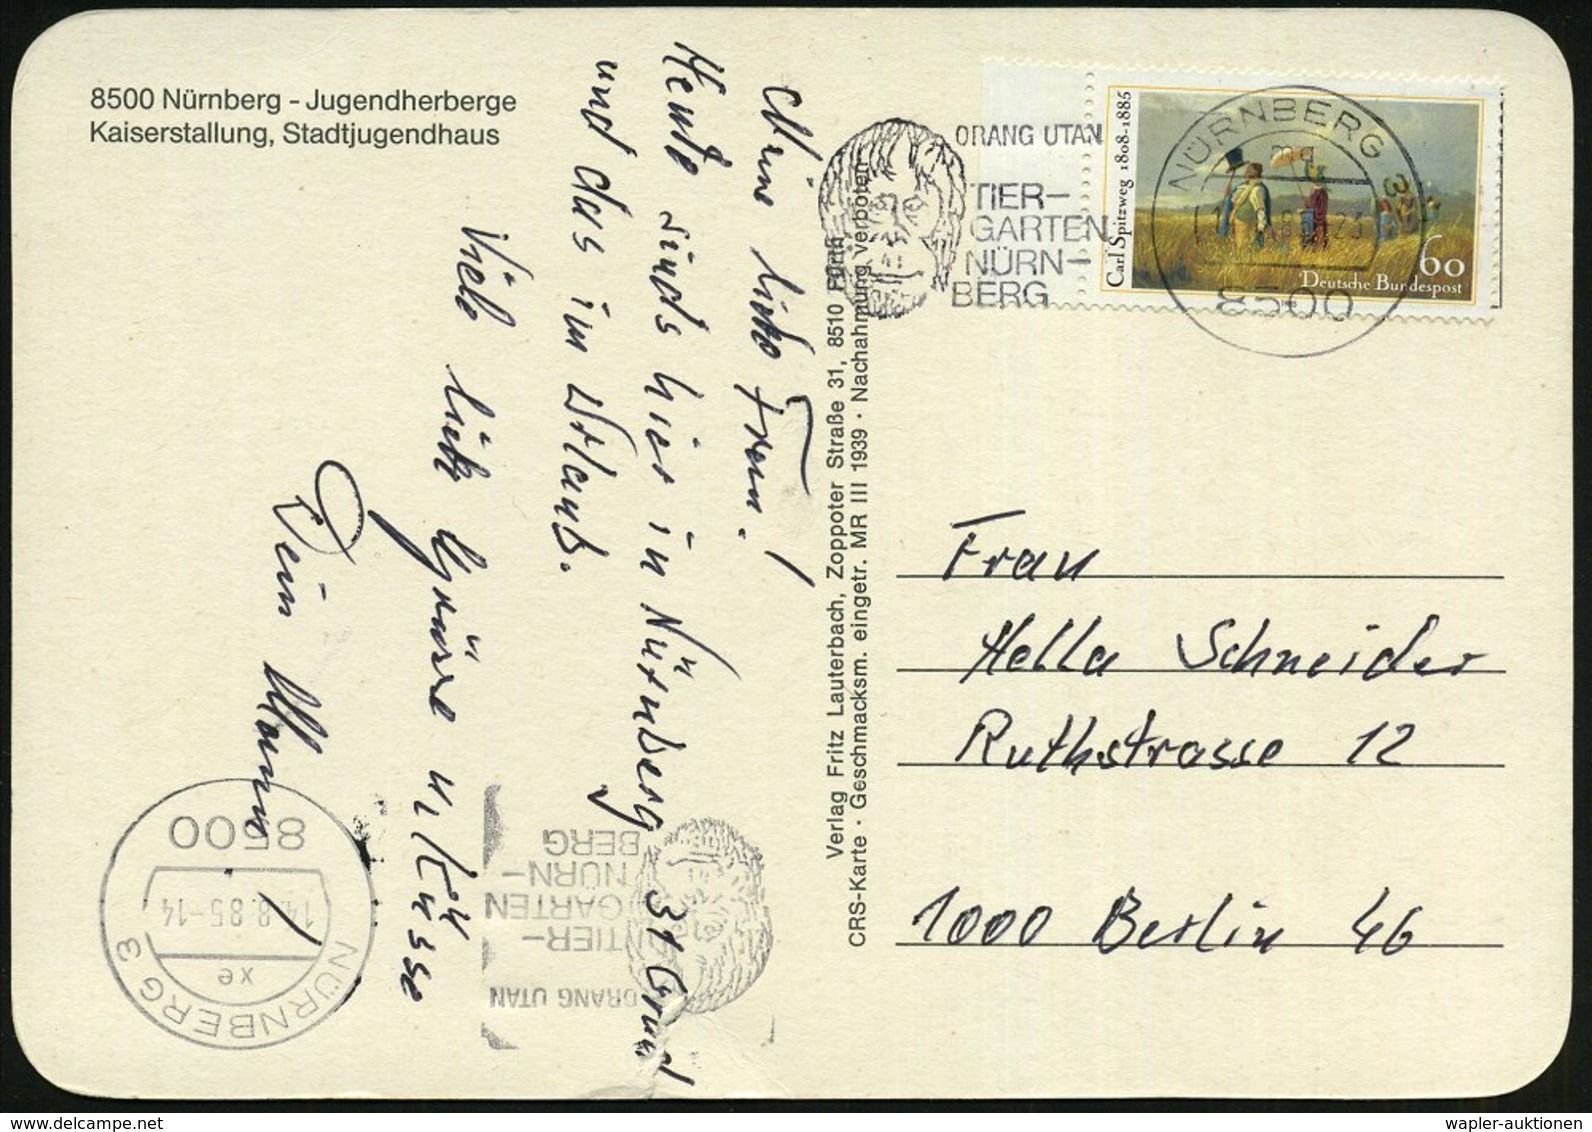 8500 Nürnberg - Jugendherberge
Kaiserstallung, Stadtjugendhaus
Meine liebe Frau!
Heute sind's hier in Nürnberg 31 Grad
und das im Urlaub.
Viele liebe Grüsse u. Küsse
Dein Mann
Verlag Fritz Lauterbach, Zoppoter Straße 31, 8510 Fürth
CRS-Karte · Geschmacksm. eingetr. MR III 1939 · Nachahmung verboten
ORANG UTAN
TIER-
GARTEN
NÜRN-
BERG
Carl Spitzweg 1808-1885
60
Deutsche Bundespost
NÜRNBERG 3
mq
8500
Frau
Hella Schneider
Ruthstrasse 12
1000 Berlin 46
NÜRNBERG 3
xe
14.8.85-14
8500
ORANG UTAN
TIER-
GARTEN
NÜRN-
BERG
www.delcampe.net
wapler-auktionen